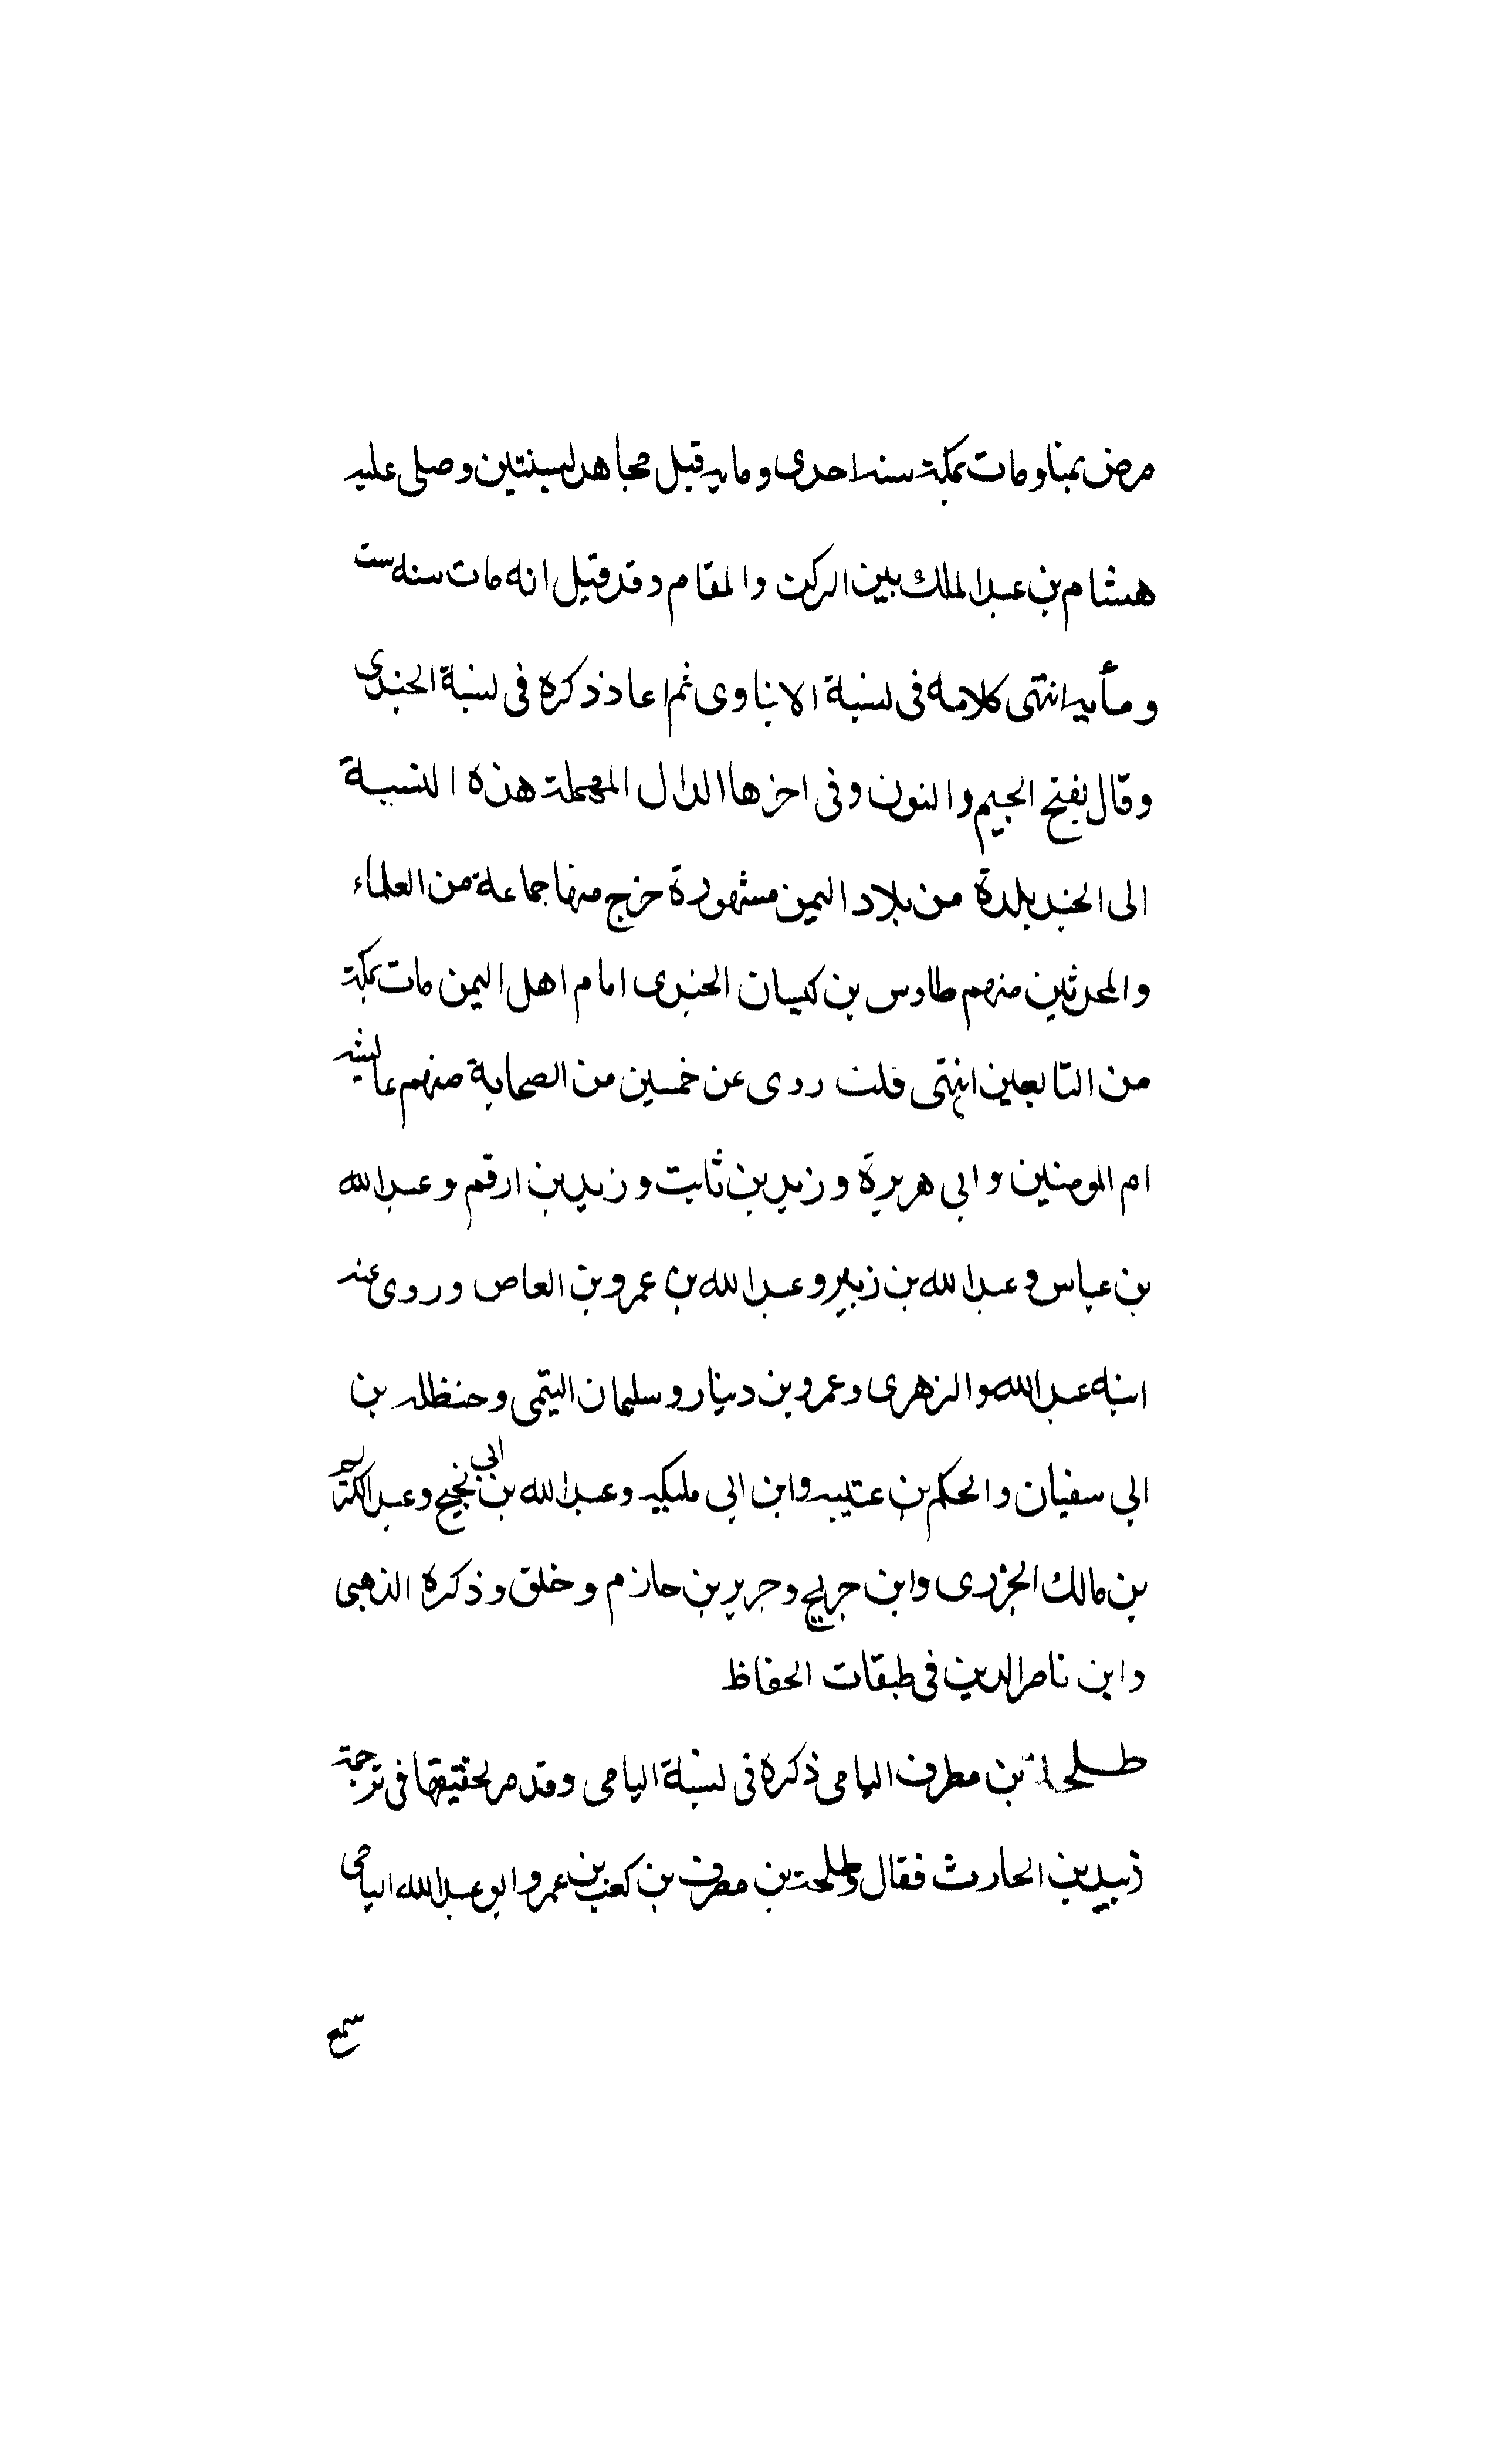 مرض بمنا ومات بمكة سنه احدى ومايه قبل مجاهد بسنتين وصلى عليه
هشام بن عبد الملك بين الركن والمقام وقد قيل انه مات سنه ست
ومأيه انتهى كلامه فى نسبة الابناوى ثم اعاد ذكره فى نسبة الجندى
وقال بفتح الجيم والنون وفى اخرها الدال المهملة هذه النسبة
الى الجند بلدة من بلاد اليمن مشهورة خرج منها جماعة من العلماء
والمحدثين منهم طاوس بن كيسان الجندى امام اهل اليمن مات بمكة
من التابعين انتهى قلت روى عن خمسين من الصحابة منهم عائشه
ام المومنين وابى هريرة وزيد بن ثابت وزيد بن ارقم وعبد الله
بن عباس وعبد الله بن زبير وعبد الله بن عمرو بن العاص وروى عنه
ابنه عبد الله والزهرى وعمرو بن دينار وسليمان التيمى وحنظله بن
ابى سفيان والحكم بن عتيبه وابن ابى مليكيه وعبد الله بن ابى نجيح وعبد الكريم
بن مالك الجزرى وابن جريج وجرير بن حازم وخلق وذكره الذهبى
وابن ناصر الدين فى طبقات الحفاظ
طلحة بن مطرف اليامى ذكره فى نسبة اليامى وقد مر تحقيقها فى ترجمة
زبيد بن الحارث فقال وطلحة بن مطرف بن كعب بن عمرو ابو عبد الله اليامى
سمع